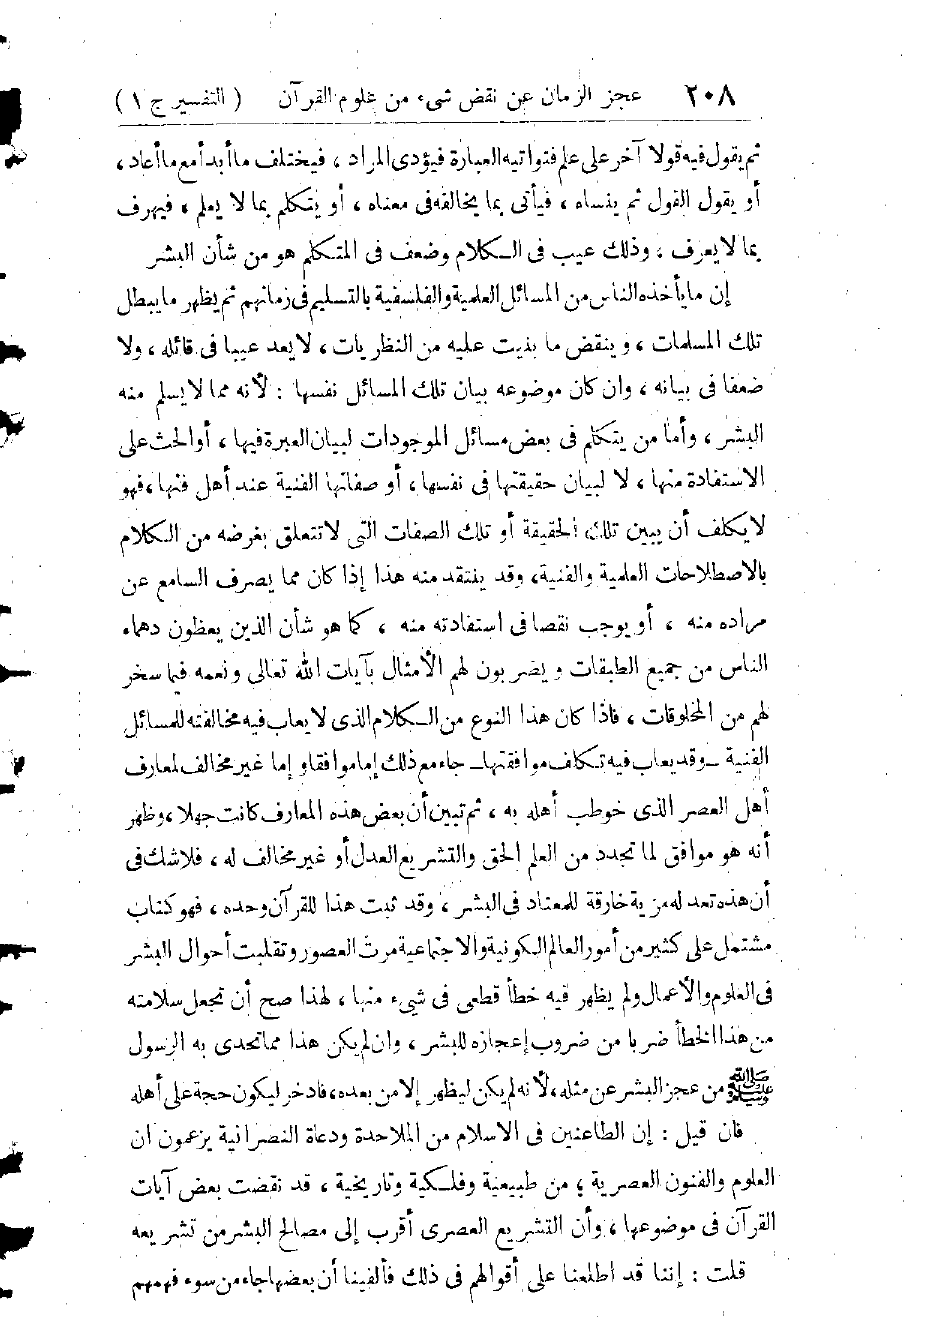 ٢٠٨ عجز الزمان عن نقض شىء من علوم القرآن ( التفسير ج ١ )
ثم يقول فيه قولا آخر على علم فتواتيه العبارة فيؤدى المراد ، فيختلف ما أبدأ مع ما أعاد ،
أو يقول القول ثم ينساه ، فيأتى بما يخالفه فى معناه ، أو يتكلم بما لا يعلم ، فيهرف
بما لا يعرف ، وذلك عيب فى الكلام وضعف فى المتكلم هو من شأن البشر
إن ما يأخذه الناس من المسائل العلمية والفلسفية بالتسليم فى زمانهم ثم يظهر ما يبطل
تلك المسلمات ، وينقض ما بنيت عليه من النظريات ، لا يعد عيبا فى قائله ، ولا
ضعفا فى بيانه ، وان كان موضوعه بيان تلك المسائل نفسها : لأنه مما لا يسلم منه
البشر ، وأما من يتكلم فى بعض مسائل الموجودات لبيان العبرة فيها ، أو الحث على
الاستفادة منها ، لا لبيان حقيقتها فى نفسها ، أو صفاتها الفنية عند أهل فنها ، فهو
لا يكلف أن يبين تلك الحقيقة أو تلك الصفات التى لا تتعلق بغرضه من الكلام
بالاصطلاحات العلمية والفنية، وقد ينتقد منه هذا إذا كان مما يصرف السامع عن
مراده منه ، أو يوجب نقصا فى استفادته منه ، كما هو شأن الذين يعظون دهماء
الناس من جميع الطبقات ويضربون لهم الأمثال بآيات الله تعالى ونعمه فيما سخر
لهم من المخلوقات ، فاذا كان هذا النوع من الكلام الذى لا يعاب فيه مخالفته للمسائل
الفنية ــ وقد يعاب فيه تكلف موافقتها ــ جاء مع ذلك إما موافقا و إما غير مخالف لمعارف
أهل العصر الذى خوطب أهله به ، ثم تبين أن بعض هذه المعارف كانت جهلا ، وظهر
أنه هو موافق لما تجدد من العلم الحق والتشريع العدل أو غير مخالف له ، فلا شك فى
أن هذه تعد له مزية خارقة للمعتاد فى البشر ، وقد ثبت هذا للقرآن وحده ، فهو كتاب
مشتمل على كثير من أمور العالم الكونية والاجتماعية مرت العصور وتقلبت أحوال البشر
فى العلوم والأعمال ولم يظهر فيه خطأ قطعى فى شيء منها ، لهذا صح أن تجعل سلامته
من هذا الخطأ ضربا من ضروب إعجازه للبشر ، وان لم يكن هذا مما تحدى به الرسول
ﷺ من عجز البشر عن مثله ، لأنه لم يكن ليظهر إلا من بعده ، فادخر ليكون حجة على أهله
فان قيل : إن الطاعنين فى الاسلام من الملاحدة ودعاة النصرانية يزعمون ان
العلوم والفنون العصرية ؛ من طبيعية وفلكية وتاريخية ، قد نقضت بعض آيات
القرآن فى موضوعها ، وأن التشريع العصرى أقرب إلى مصالح البشر من تشريعه
قلت : إننا قد اطلعنا على أقوالهم فى ذلك فألفينا أن بعضها جاء من سوء فهمهم